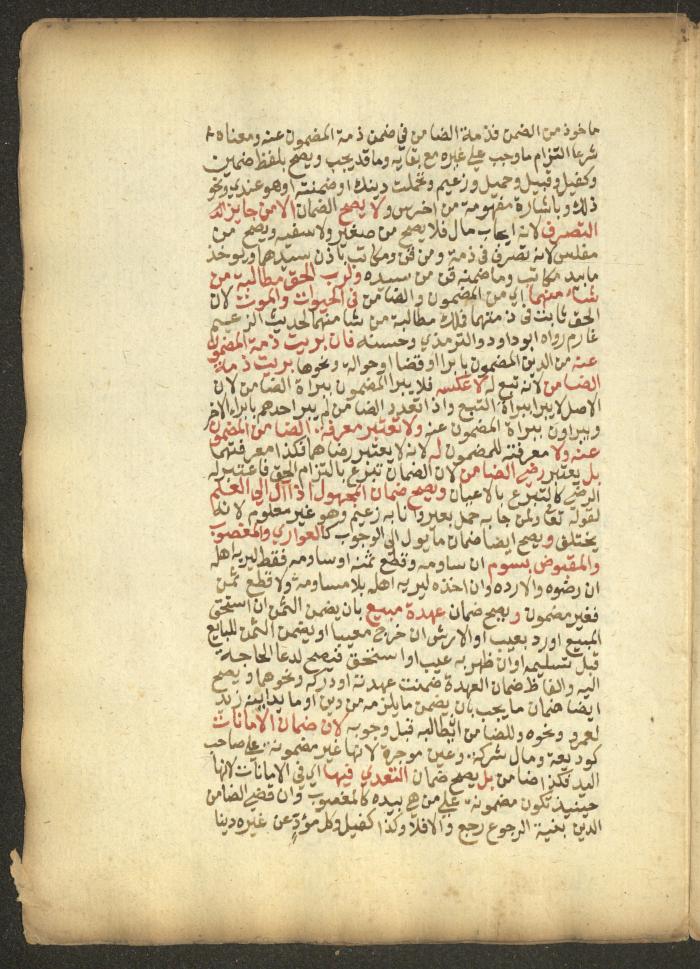 ماخوذ من الضمن فذمة الضامن في ضمن ذمة المضمون عنه ومعناه
شرعا التزام ما وجب على غيره مع بقايه وما قد يجب ويصح بلفظ ضمين
وكفيل وقبيل وحميل وزعيم وتحملت دينك او ضمنته او هو عندي ونحو
ذلك وباشارة مفهومة من اخرس ولا يصح الضمان الا من جايز له
التصرف لانه ايجاب مال فلا يصح من صغير ولا سفيه ويصح من
مفلس لانه تصرف في ذمة ومن قن ومكاتب باذن سيدهما ويوخذ
مما بيد مكاتب وما ضمنه قن من سيده ولرب الحق مطالبة من
شاء منهما اي من المضمون والضامن في الحيوات والموت لان
الحق ثابت في ذمتهما فملك مطالبة من شا منهما لحديث الزعيم
غارم رواه ابو داود والترمذي وحسنه فان بريت ذمة المضمون
عنه من الدين المضمون بابرا او قضا او حواله ونحوها بريت ذمة
الضامن لانه تبع له لا عكسه فلا يبرا المضمون ببراة الضامن لان
الاصل لا يبرا ببراة التبع واذا تعدد الضامن لم يبر احدهم بابراء الاخر
ويبراون ببراة المضمون عنه ولا تعتبر معرفة الضامن المضمون
عنه ولا معرفته للمضمون له لانه لا يعتبر رضاهما فكذا معرفتهما
بل يعتبر رضى الضامن لان الضمان تبرع بالتزام الحق فاعتبر له
الرضى كالتبرع بالاعيان ويصح ضمان المجهول اذا آل الى العلم
لقوله تعالى ولمن جا به حمل بعير وانا به زعيم وهو غير معلوم لانه
يختلف ويصح ايضا ضمان ما يول الى الوجوب كالعواري والمغصوب
والمقبوض بسوم ان ساومه وقطع ثمنه او ساومه فقط ليريه اهله
ان رضوه والا رده وان اخذه ليريه اهله بلا مساومة ولا قطع ثمن
فغير مضمون ويصح ضمان عهدة مبيع بان يضمن الثمن ان استحق
المبيع او رد بعيب او الارش ان خرج معيبا او يضمن الثمن للبايع
قبل تسليمه او ان ظهر به عيب او استحق فيصح لدعا الحاجة
اليه والفاظ ضمان العهدة ضمنت عهدته او دركه ونحوهما ويصح
ايضا ضمان ما يجب بان يضمن ما يلزمه من دين او ما يداينه زيد
لعمرو ونحوه وللضامن ابطاله قبل وجوبه لان ضمان الامانات
كوديعة ومال شركة وعين موجرة لانها غير مضمونة على صاحب
اليد فكذا ضامن بل يصح ضمان التعدي فيها اي في الامانات لانها
حينيذ تكون مضمونة على من هي بيده كالمغصوب وان قضى الضامن
الدين بغنية الرجوع رجع والا فلا وكذا كفيل وكل مؤد عن غيره دينا